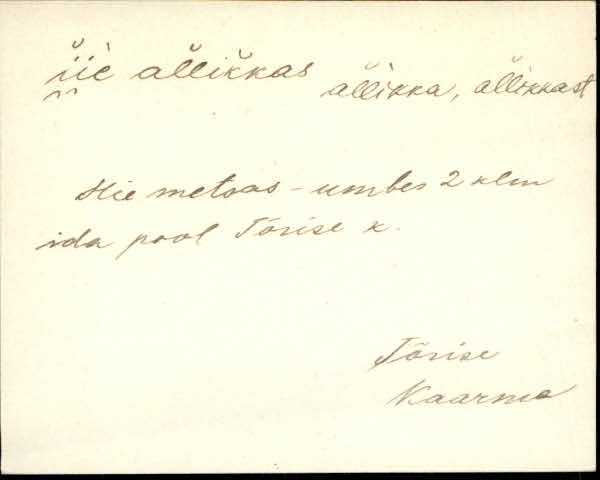 iie allikkas allikka, allikkast
Hie metsas - umbes 2 klm
ida pool Tõrise k.
Tõrise
Kaarma